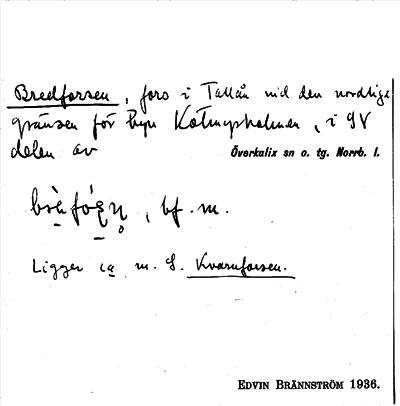 Bredforsen, fors i Tallån vid den nordliga
gränsen för byn Kölmjärv, i SV
delen av Överkalix sn o. tg. Norrb. l.
bf. m.
Ligger ca m. S. Kvarnforsen.
EDVIN BRÄNNSTRÖM 1936.